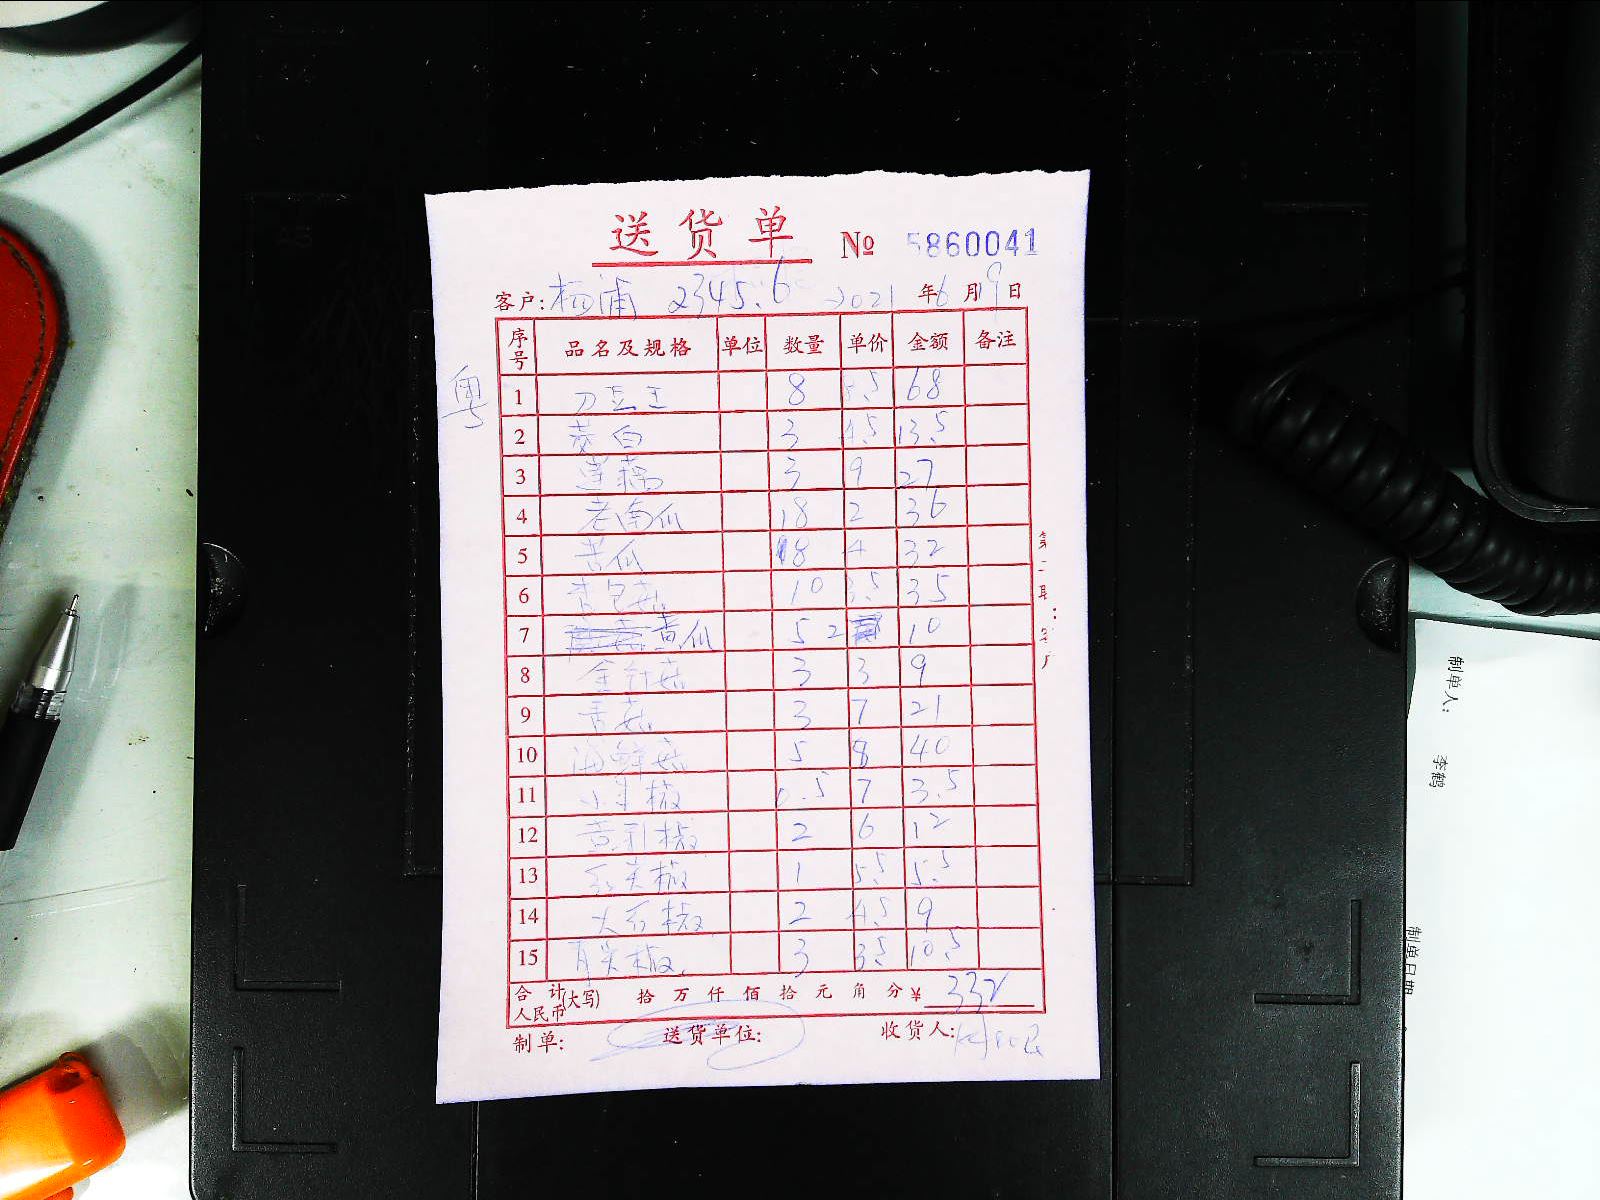 送货单
№ 5860041
客户: 杨浦 2345.6 2021年6月19日
粤
序号 品名及规格 单位 数量 单价 金额 备注
1 刀豆王 8 8.5 68
2 茭白 3 4.5 13.5
3 莲藕 3 9 27
4 老南瓜 18 2 36
5 苦瓜 8 4 32
6 杏包菇 10 3.5 35
7 黄瓜 5 2 10
8 金针菇 3 3 9
9 香菇 3 7 21
10 海鲜菇 5 8 40
11 小米椒 0.5 7 3.5
12 黄彩椒 2 6 12
13 红尖椒 1 5.5 5.5
14 大石椒 2 4.5 9
15 青尖椒 3 3.5 10.5
合计人民币(大写) 拾 万 仟 佰 拾 元 角 分 ¥ 332
制单: 送货单位: 收货人:
第二联:
制单人:
李鹤
制单日期